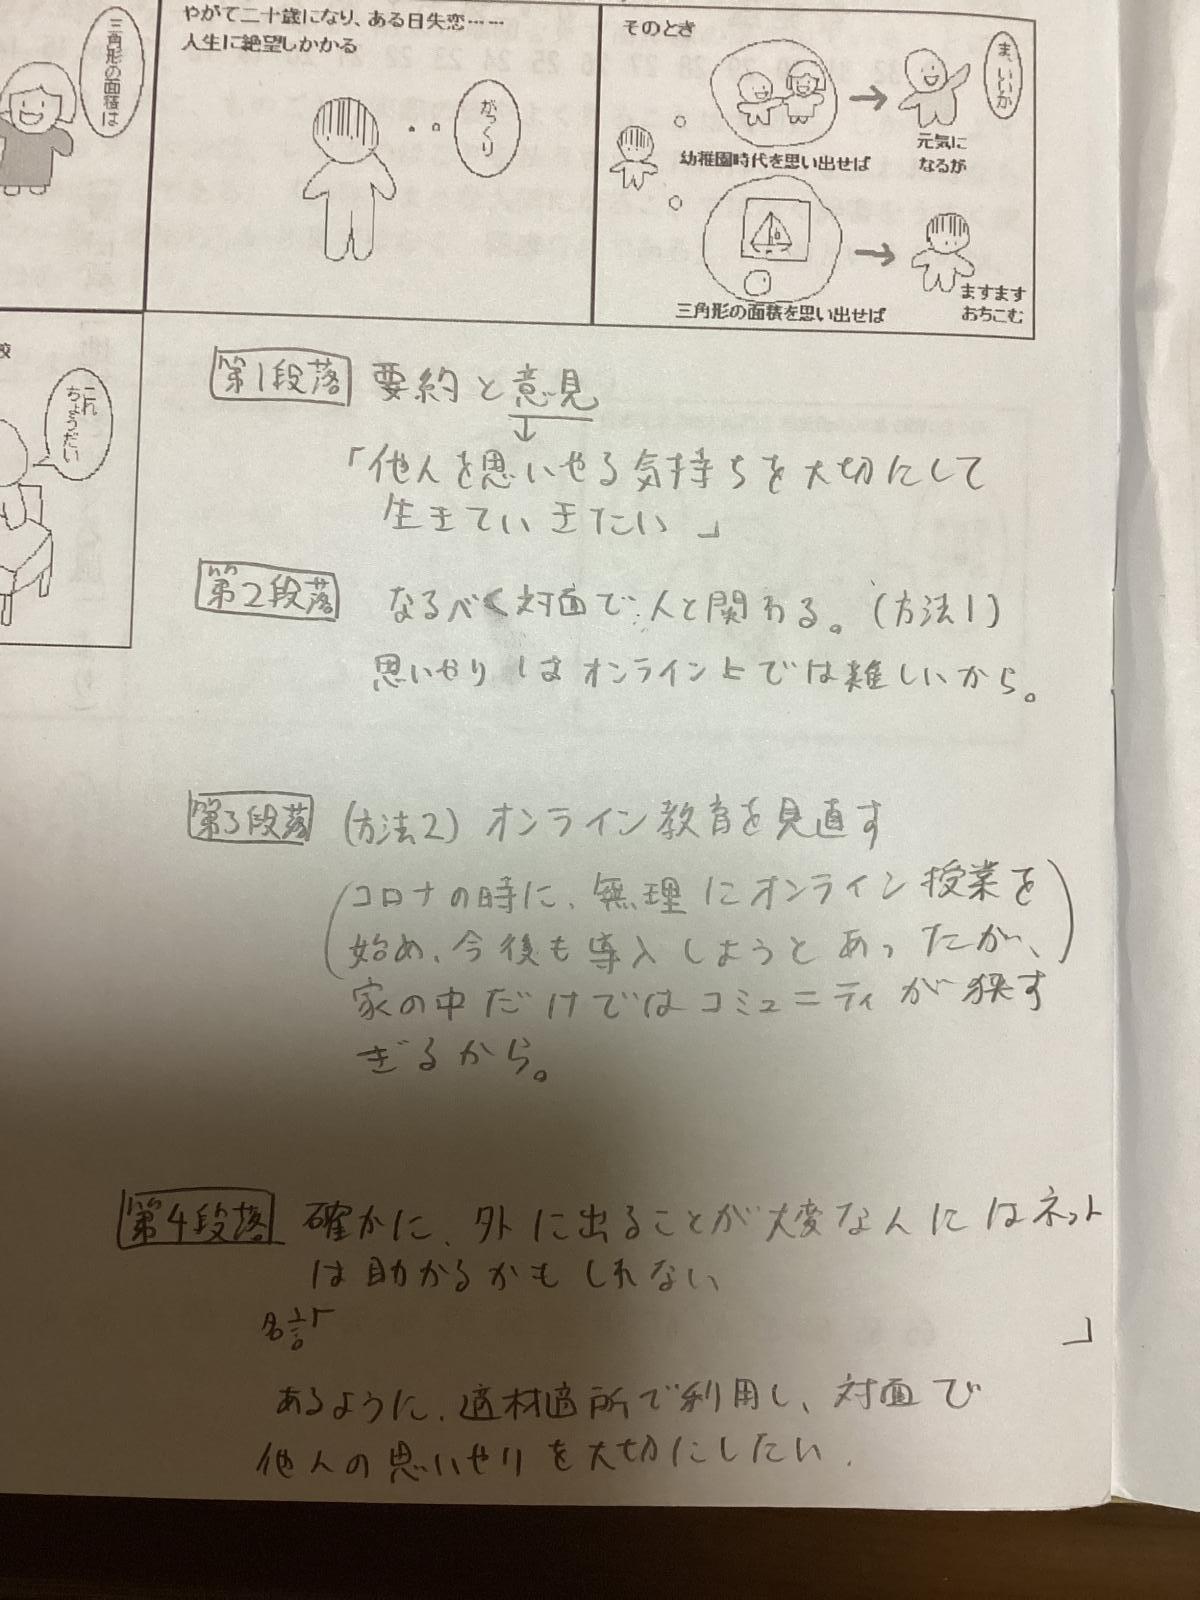 三角形の面積は
やがて二十歳になり、ある日失恋……
人生に絶望しかかる
がっくり
そのとき
ま、いいか
元気に
なるが
幼稚園時代を思い出せば
ますます
おちこむ
三角形の面積を思い出せば
校
これ
ちょうだい
第1段落 要約と意見
↓
「他人を思いやる気持ちを大切にして
生きていきたい」
第2段落 なるべく対面で人と関わる。(方法1)
思いやりはオンライン上では難しいから。
第3段落 (方法2) オンライン教育を見直す
(コロナの時に、無理にオンライン授業を
始め、今後も導入しようとあったが、)
家の中だけではコミュニティが狭す
ぎるから。
第4段落 確かに、外に出ることが大変な人にはネット
は助かるかもしれない
名言「 」
あるように、適材適所で利用し、対面で
他人の思いやりを大切にしたい.